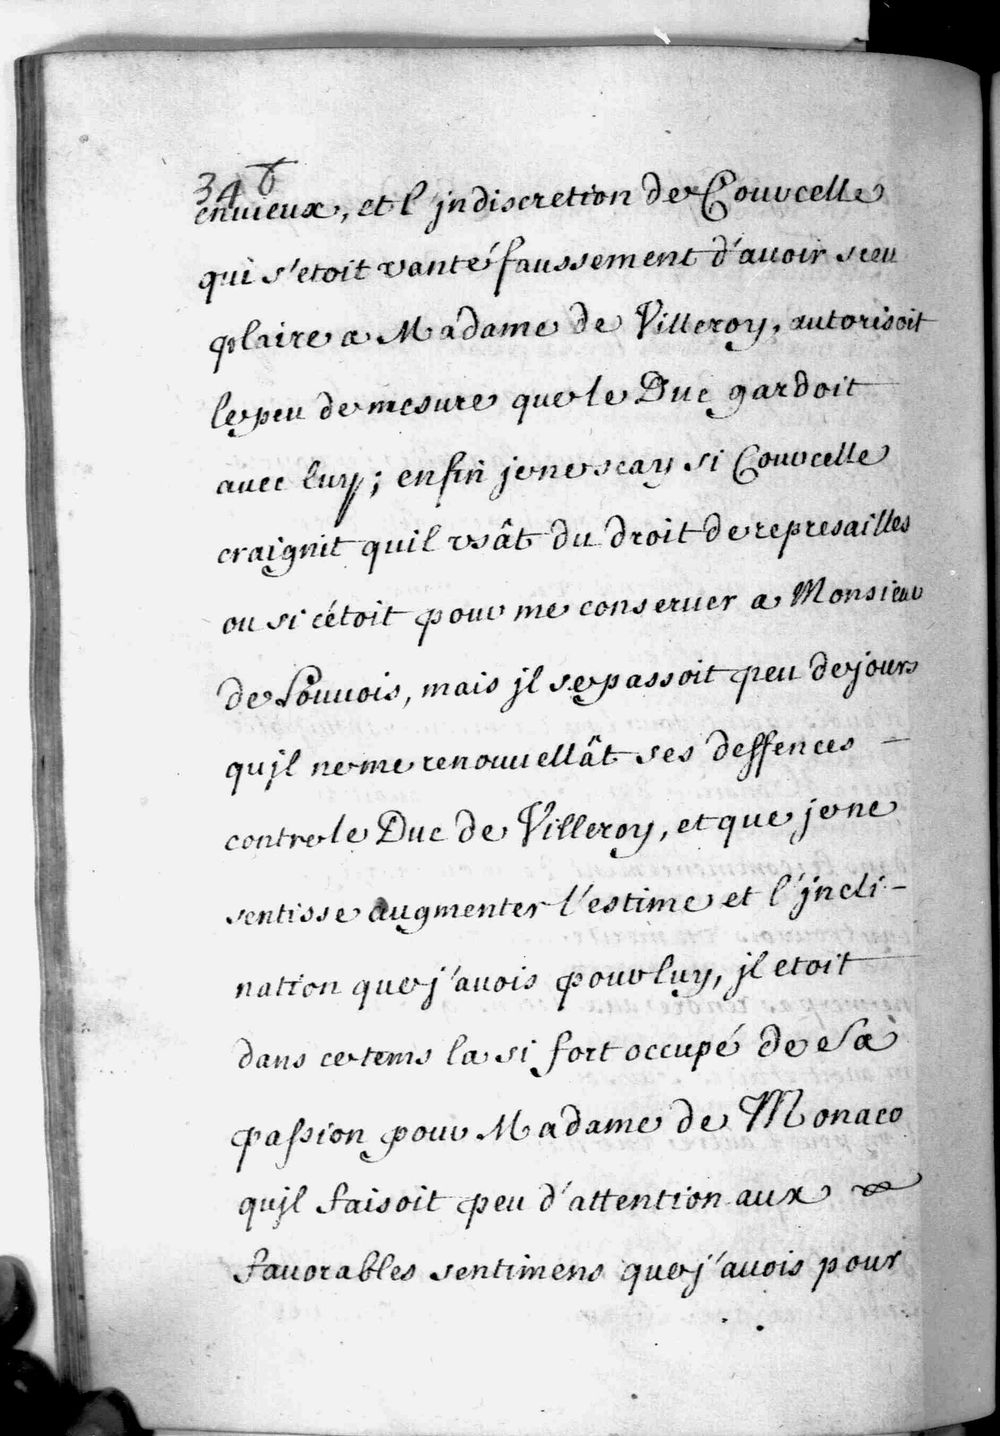 346
envieux, et l'jndiscretion de Courcelle
qui s'etoit vanté faussement d'auoir sceu
plaire a Madame de Villeroy, autorisoit
le peu de mesure que le Duc gardoit
auec luy; enfin je ne scay si Courcelle
craignit quil vsât du droit de represailles
ou si cétoit pour me conseruer a Monsieur
de Louuois, mais jl se passoit peu de jours
qujl ne me renouuellât ses deffences
contre le Duc de Villeroy, et que je ne
sentisse augmenter l'estime et l'jncli-
nation que j'auois pour luy, jl etoit
dans ce tems la si fort occupé de sa
passion pour Madame de Monaco
qujl faisoit peu d'attention aux
fauorables sentimens que j'auois pour